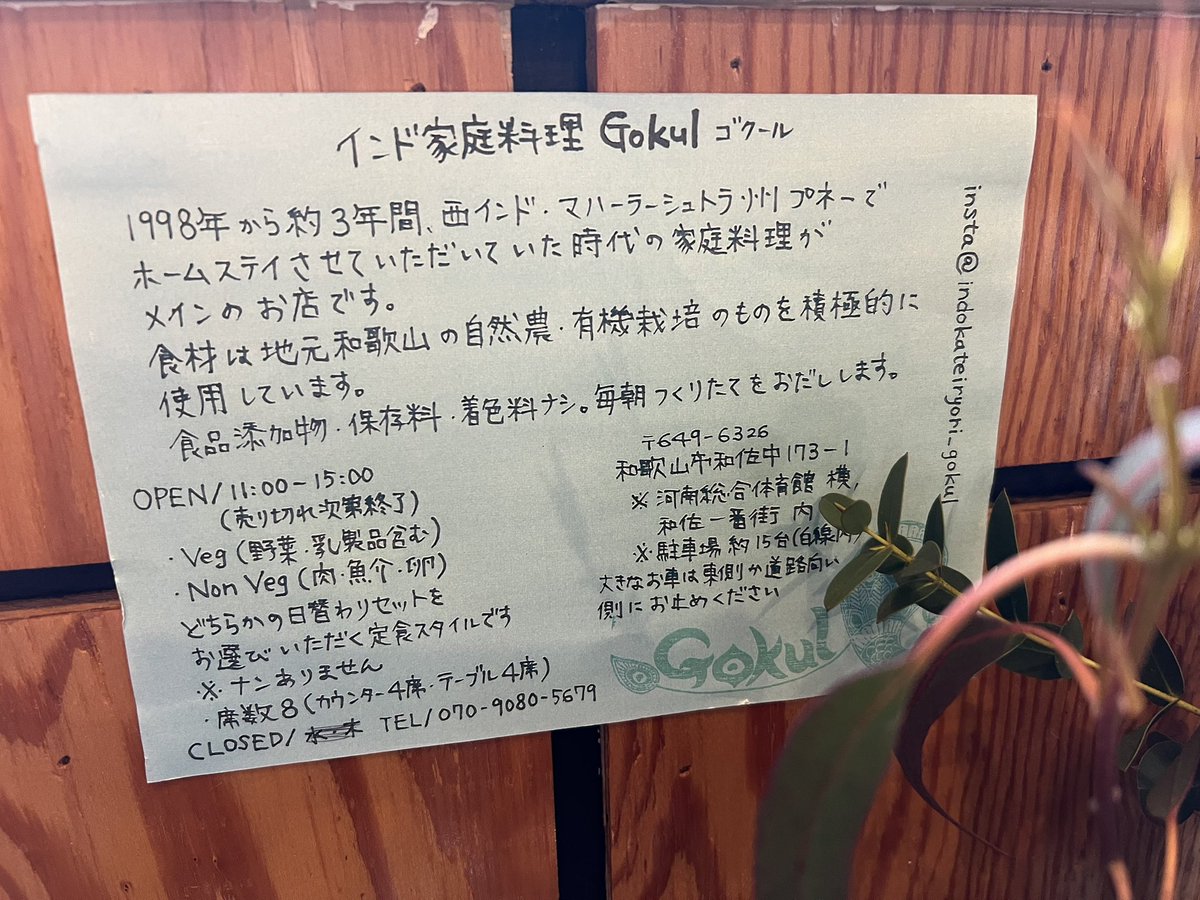 インド家庭料理 Gokul ゴクール
1998年から約3年間、西インド・マハーラーシュトラ州 プネーで
ホームステイさせていただいていた時代の家庭料理が
メインのお店です。
食材は地元和歌山の自然農・有機栽培のものを積極的に
使用しています。
食品添加物・保存料・着色料ナシ。毎朝つくりたてをおだしします。
OPEN/11:00-15:00
(売り切れ次第終了)
・Veg (野菜・乳製品含む)
・Non Veg (肉・魚介・卵)
どちらかの日替わりセットを
お選びいただく定食スタイルです
※ナンありません
・席数8(カウンター4席・テーブル4席)
CLOSED/ 木 TEL/070-9080-5679
〒649-6326
和歌山市和佐中173-1
※河南総合体育館 横,
和佐一番街 内
※駐車場 約15台(白線内)
大きなお車は東側か道路向い
側にお止めください
Gokul
insta@indokateiryohi_gokul